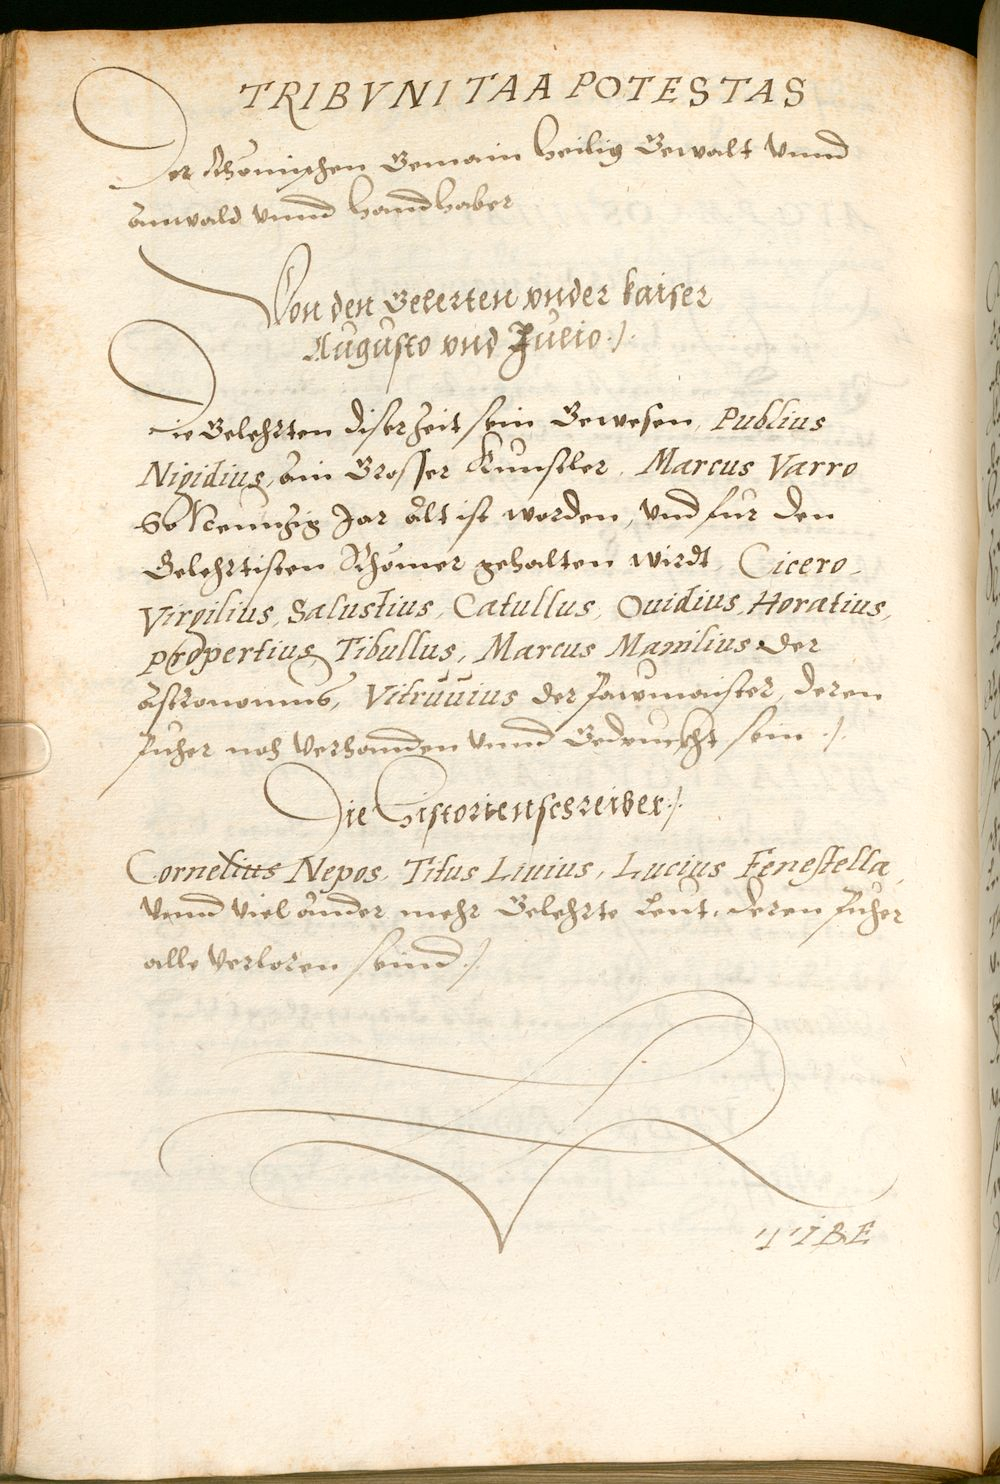 TRIBVNITAA POTESTAS
Der Rhömischen Gemain heilig Gewalt vnnd
anwald vnnd handhaber
Von den Gelerten vnder kaiser
Augusto vnd Julio ./.
Die Gelehrten diser Zeit sein Gewesen, Publius
Nigidius, ain Grosser Kunstler, Marcus Varro
So Neunzig Jar alt ist worden, vnd fur den
Gelehrtisten Rhömer gehalten wirdt, Cicero,
Virgilius, Salustius, Catullus, Ouidius, Horatius,
propertius, Tibullus, Marcus Manilius der
astronomus, Vitruuius der pawmaister, deren
pucher noch verhannden vnnd Gedruckht sein ./.
Die Historienschreiber ./.
Cornelius Nepos, Titus Liuius, Lucius Fenestella,
vnnd viel ander mehr Gelehrte Leut, deren pucher
alle verloren seind ./.
TIBE